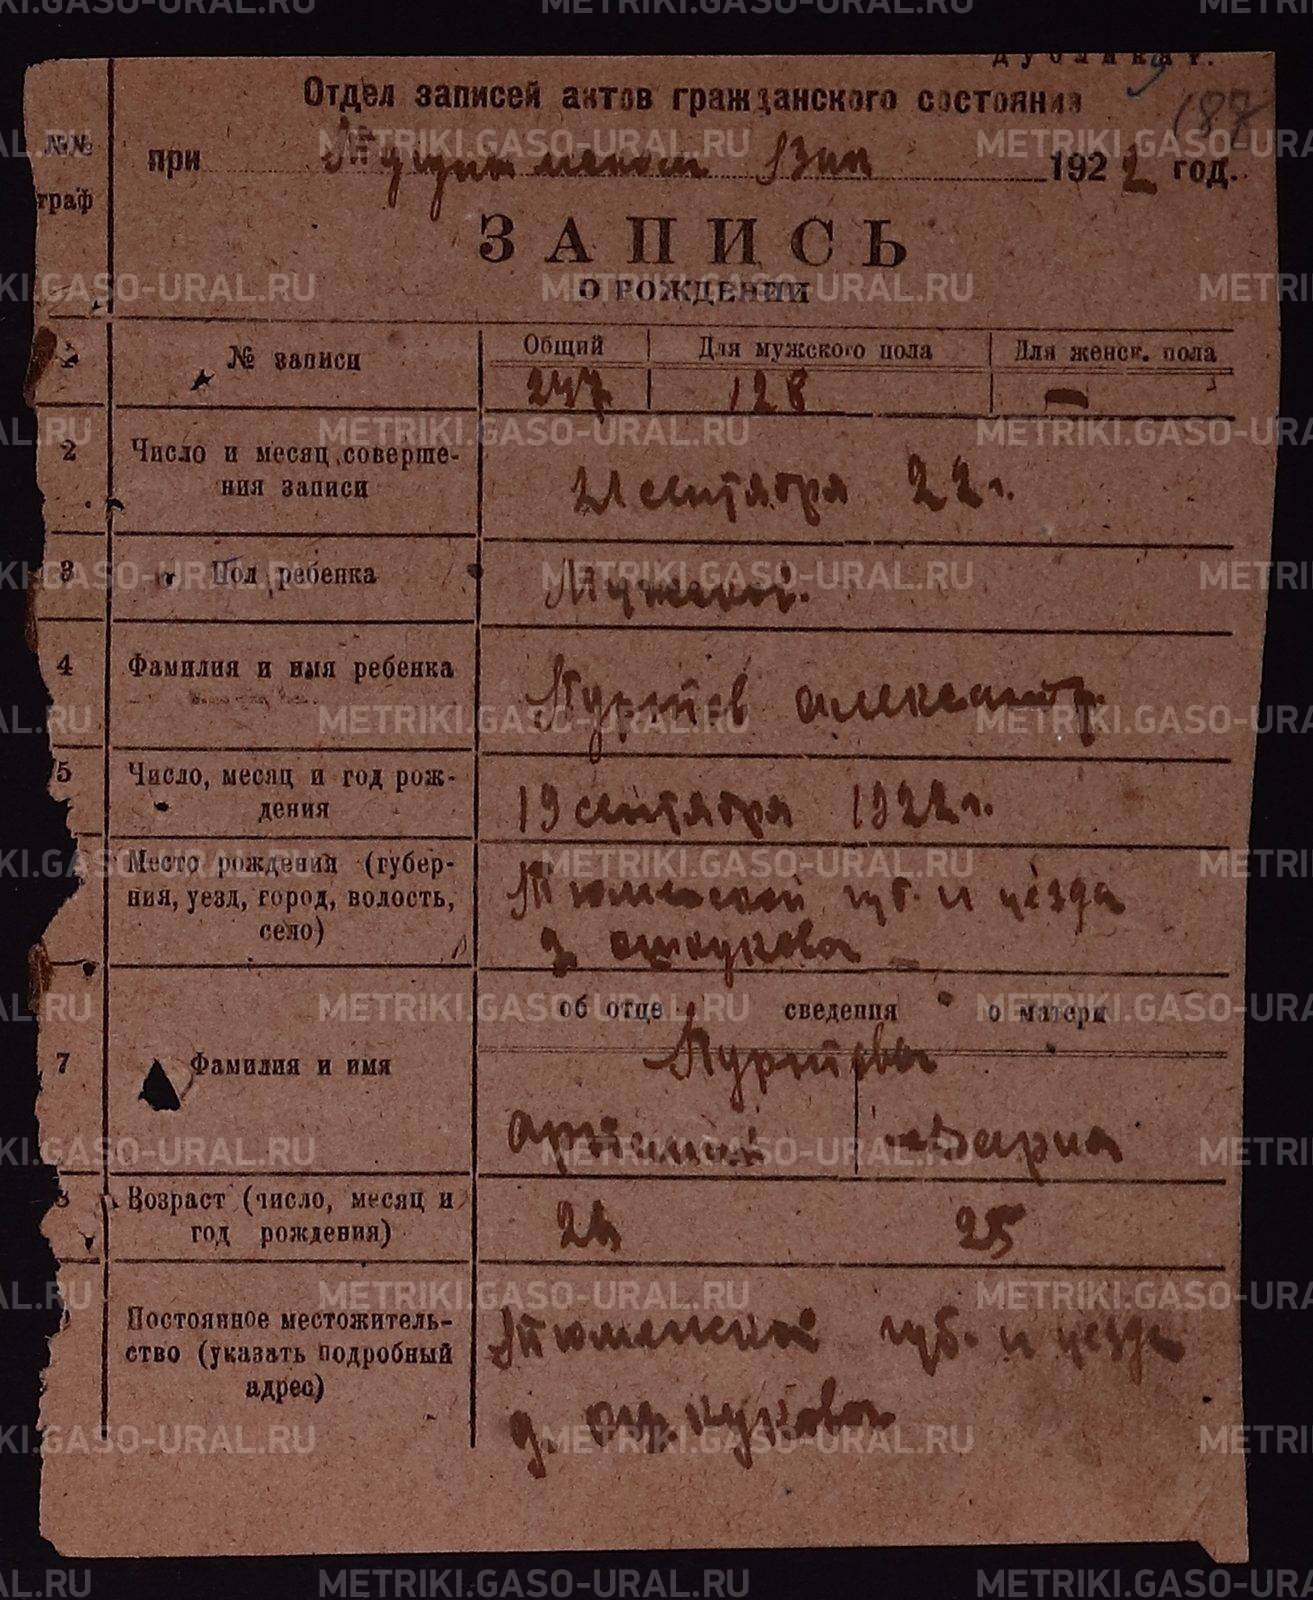 Дубликат.
Отдел записей актов гражданского состояния
187
№№ граф
при Тугулымском Вик 1922 год.
ЗАПИСЬ
О РОЖДЕНИИ
№ записи
Общий Для мужского пола Для женск. пола
247 128 —
2 Число и месяц совершения записи
21 сентября 22 г.
3 Пол ребенка
Мужской.
4 Фамилия и имя ребенка
Александр.
5 Число, месяц и год рождения
19 сентября 1922 г.
Место рождения (губерния, уезд, город, волость, село)
Тюменской губ. и уезда
д.
об отце сведения о матери
7 Фамилия и имя
Дария
Возраст (число, месяц и год рождения)
25
Постоянное местожительство (указать подробный адрес)
Тюменской губ. и уезда
д.
METRIKI.GASO-URAL.RU